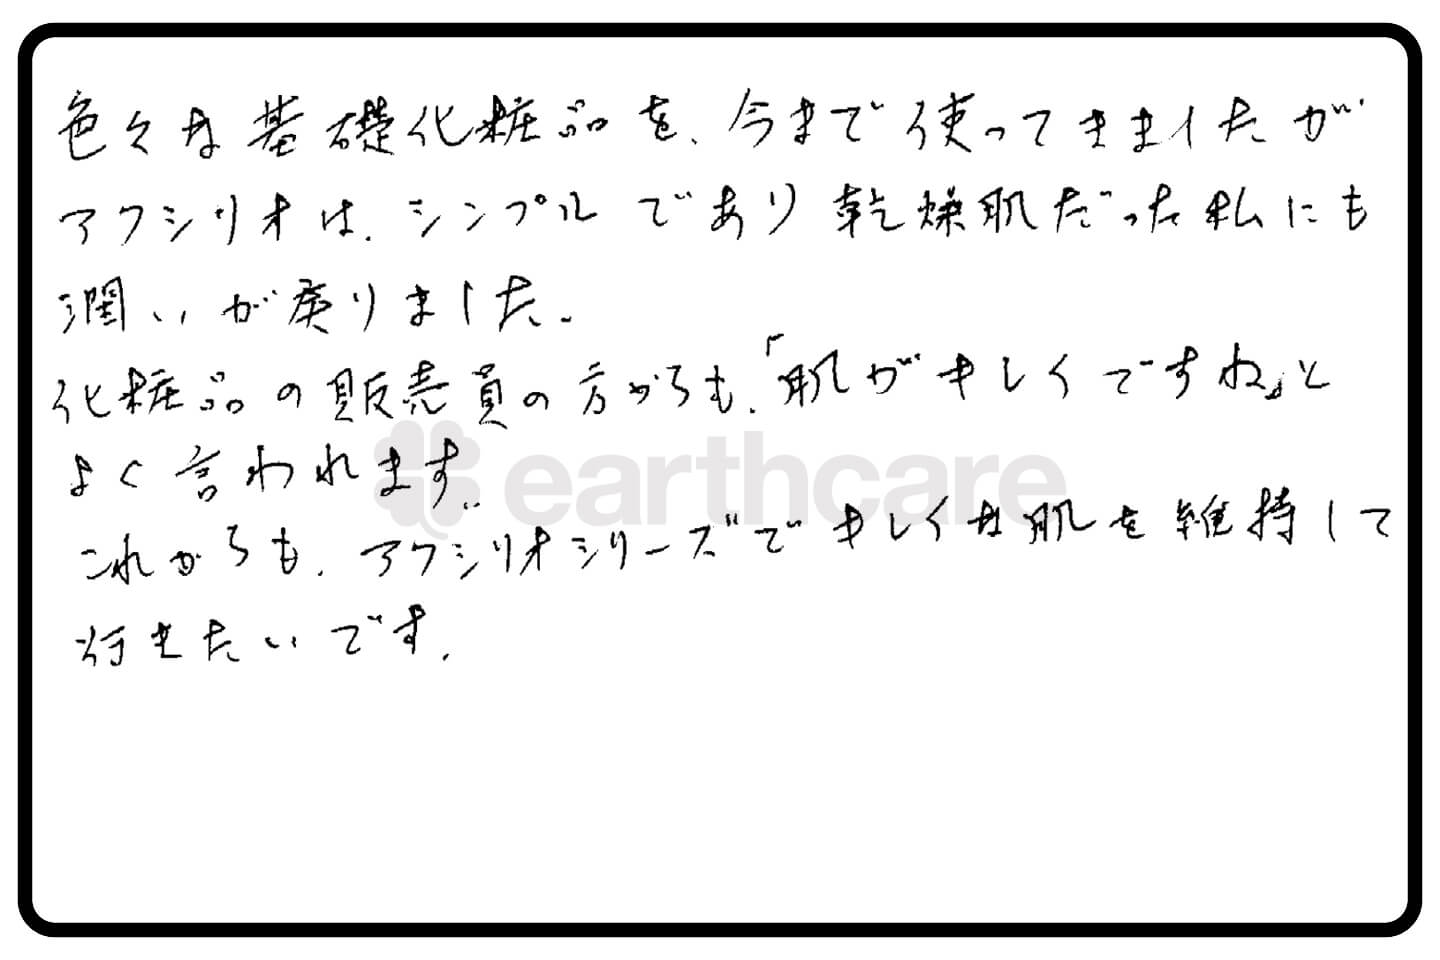 色々な基礎化粧品を、今まで使ってきましたが
アクシリオは、シンプルであり乾燥肌だった私にも
潤いが戻りました。
化粧品の販売員の方からも、「肌がキレイですね」と
よく言われます。
earthcare
これからも、アクシリオシリーズでキレイな肌を維持して
行きたいです。